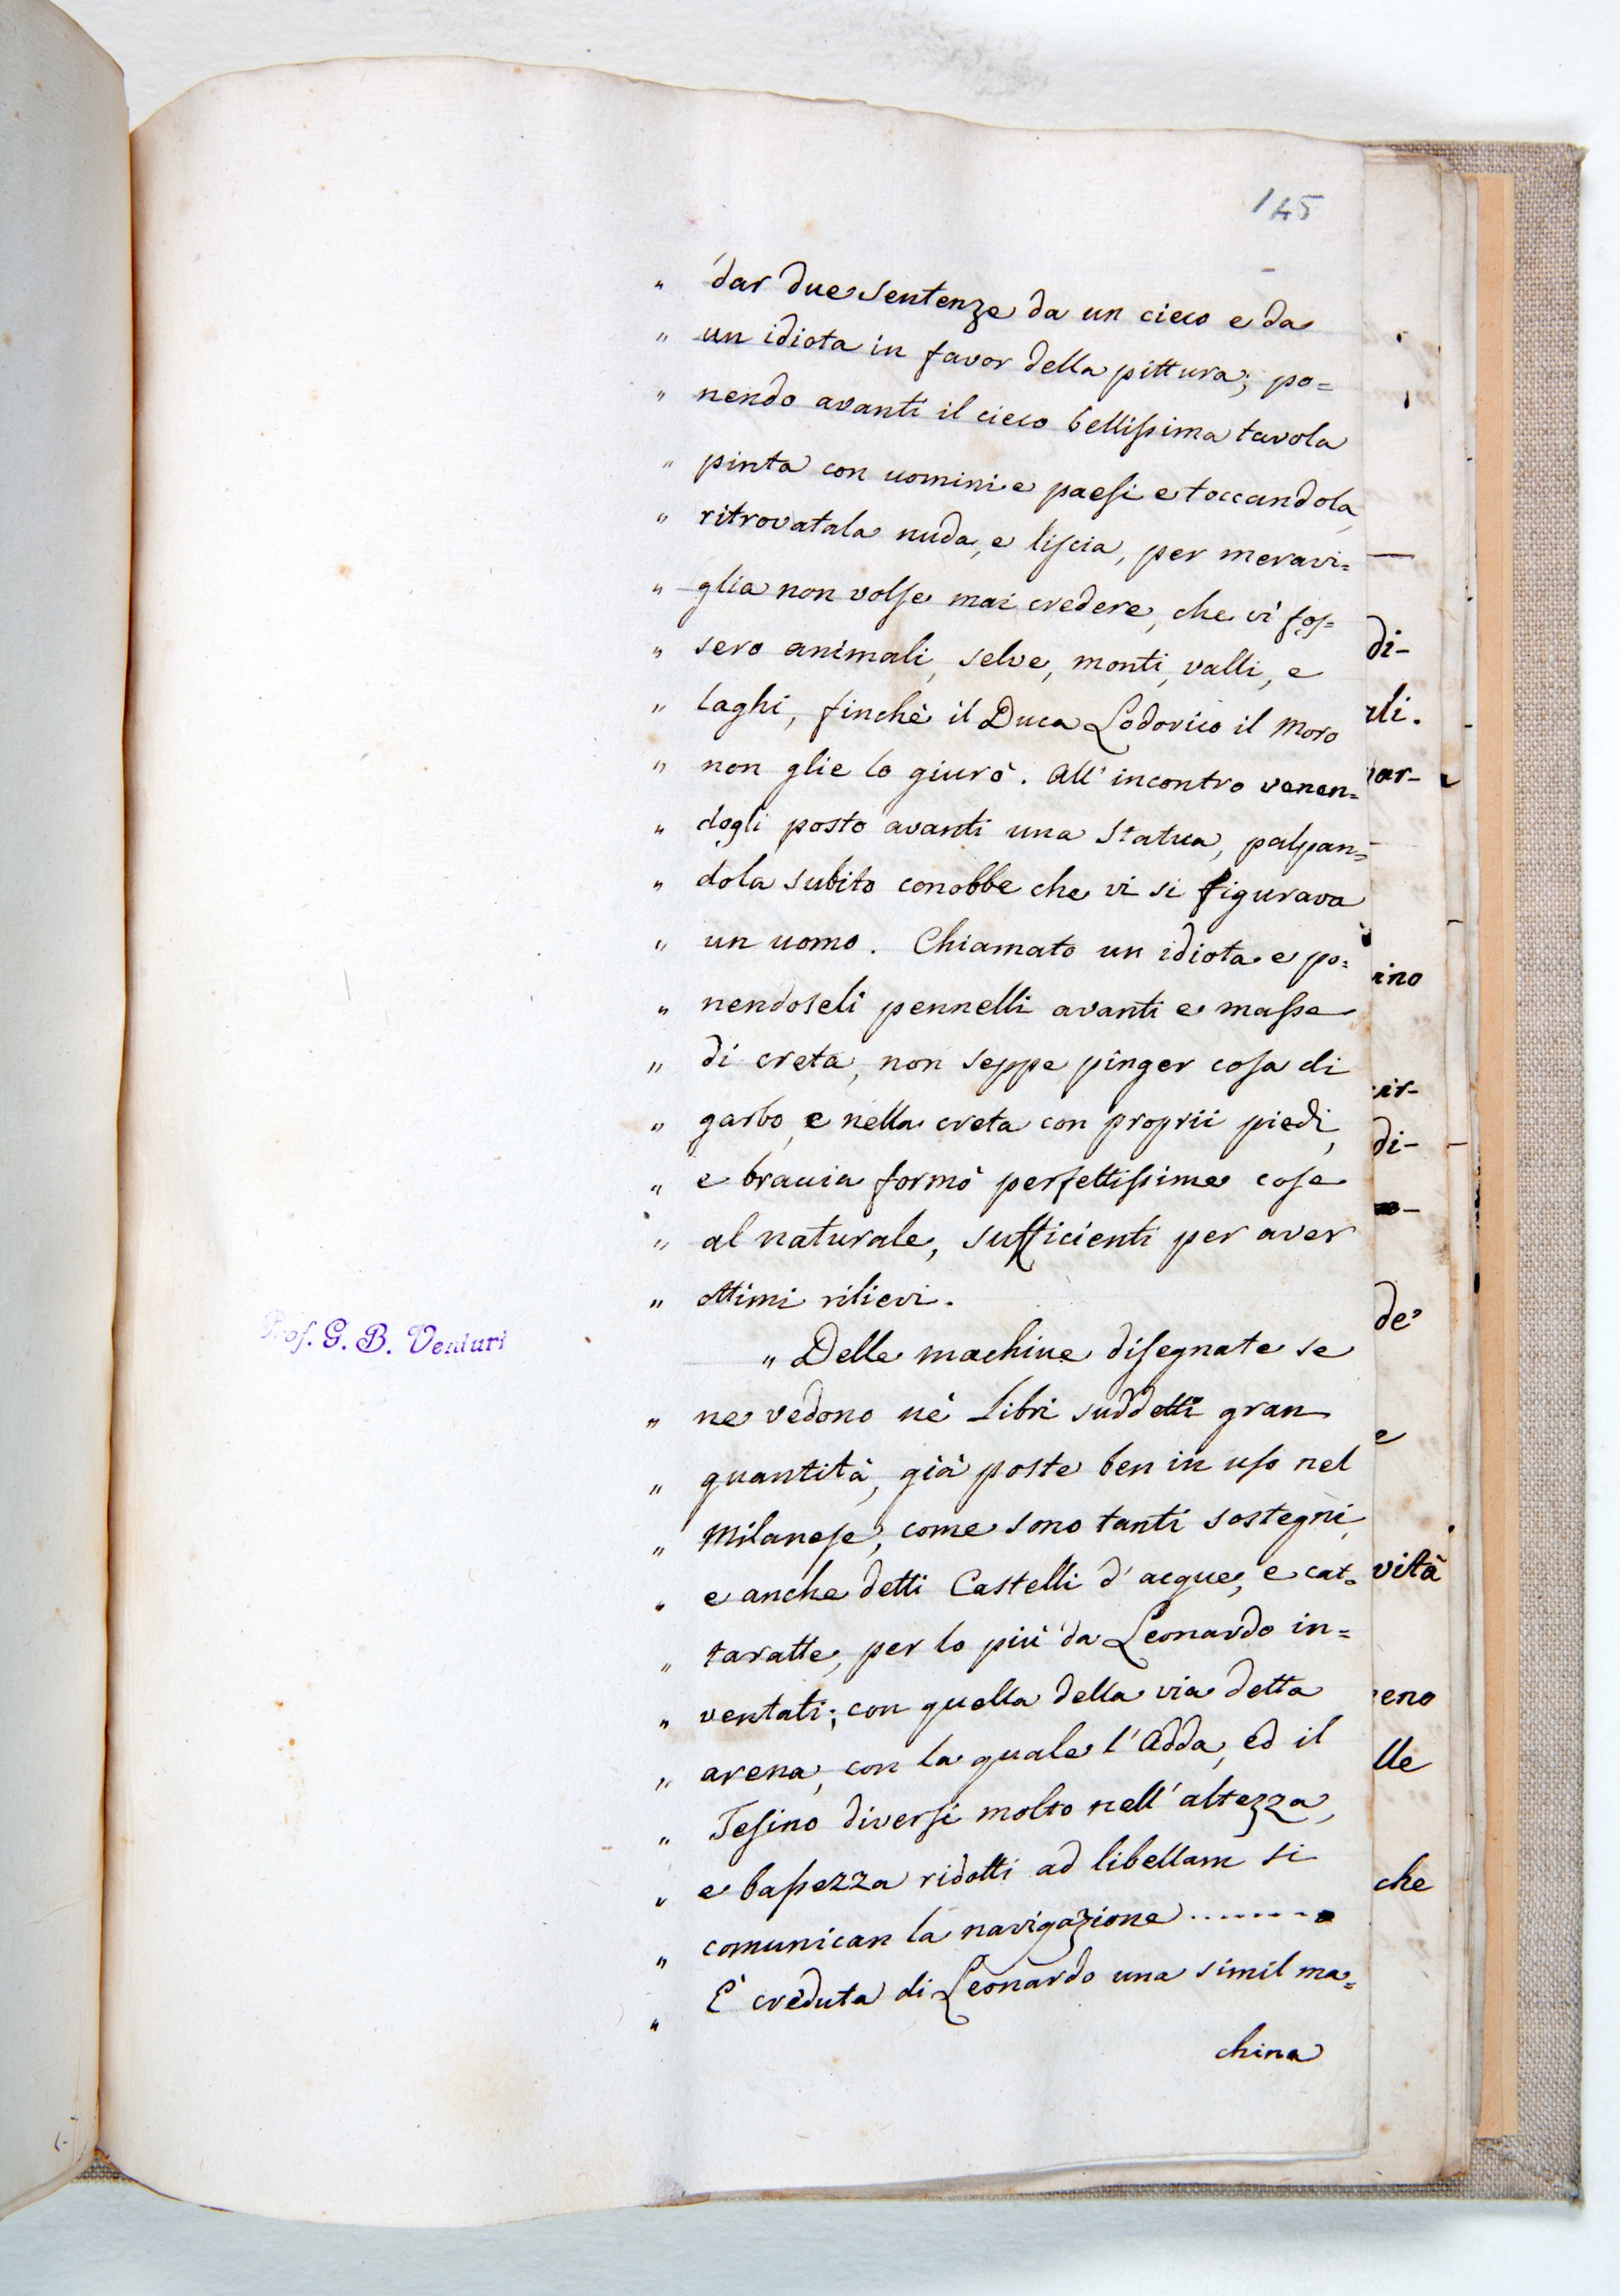 145
„ dar due sentenze da un cieco e da
„ un idiota in favor della pittura; po=
„ nendo avanti il cieco bellissima tavola
„ pinta con uomini e paesi e toccandola,
„ ritrovatala nuda, e liscia, per meravi=
„ glia non volse mai credere, che vi fos=
„ sero animali, selve, monti, valli, e
„ laghi, finchè il Duca Lodovico il Moro
„ non glie lo giurò. All' incontro venen=
„ dogli posto avanti una statua, palpan=
„ dola subito conobbe che vi si figurava
„ un uomo. Chiamato un idiota e po=
„ nendoseli pennelli avanti e masse
„ di creta, non seppe pinger cosa di
„ garbo, e nella creta con proprii piedi,
„ e braccia formò perfettissime cose
„ al naturale, sufficienti per aver
„ ottimi rilievi.
Prof. G. B. Venturi
„ Delle machine disegnate se
„ ne vedono nè Libri suddetti gran
„ quantità, già poste ben in uso nel
„ Milanese, come sono tanti sostegni,
„ e anche detti Castelli d' acque, e cat=
„ taratte, per lo più da Leonardo in=
„ ventati; con quella della via detta
„ arena, con la quale l' Adda, ed il
„ Tesino diversi molto nell' altezza,
„ e bassezza ridotti ad libellam si
„ comunican la navigazione ........
„ È creduta di Leonardo una simil ma=
china
di-
ar-
ino
ir-
di-
de'
e
vità
eno
lle
che